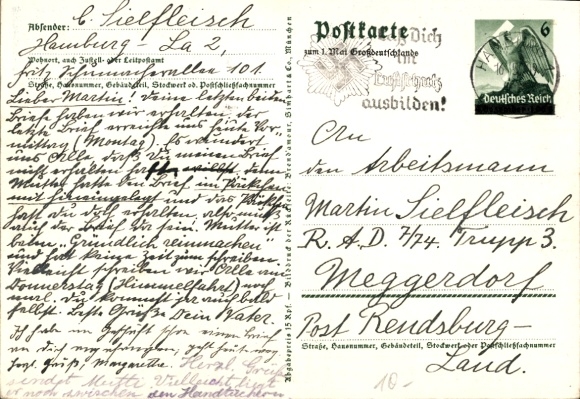 Absender: C. Sielfleisch
Hamburg - La 2,
Wohnort, auch Zustell- oder Leitpostamt
Fritz Schumacherallee 101.
Straße, Hausnummer, Gebäudeteil, Stockwerk od. Postschließfachnummer
Lieber Martin! Deine letzten beiden
Briefe haben wir erhalten, der
letzte Brief erreichte uns heute Vor-
mittag (Montag). Es wundert
uns Alle, daß Du meinen Brief
nicht erhalten denn
Mutter hatte den Brief im Päckchen
mit hineingelegt und das Päckchen
hast du doch erhalten, also muß
auch der Brief da sein. Mutter ist
beim „Gründlich reinmachen"
und hat keine Zeit zum schreiben.
Vielleicht schreiben wir Alle am
Donnerstag (Himmelfahrt) noch
mal. Du kommst ja auch bald
selbst. Beste Grüße Dein Vater.
Ich habe im Geschäft schon einen Brief
an Dich angefangen, geht heute weg
Herzl. Grüß, Margarethe. Herzl. Grüße
sendet Mutti Vielleicht liegt
er noch zwischen den Handtüchern
Abgabepreis 15 Rpf. - Bilddruck der Rückseite: Brendamour, Simhart & Co. München
Postkarte
zum 1. Mai Großdeutschlands
Laß dich
im
Luftschutz
ausbilden!
6
Deutsches Reich
An
den Arbeitsmann
Martin Sielfleisch
R. A. D. 7/74. Trupp 3.
Meggerdorf
Post Rendsburg-
Straße, Hausnummer, Gebäudeteil, Stockwerk oder Postschließfachnummer
Land.
10-